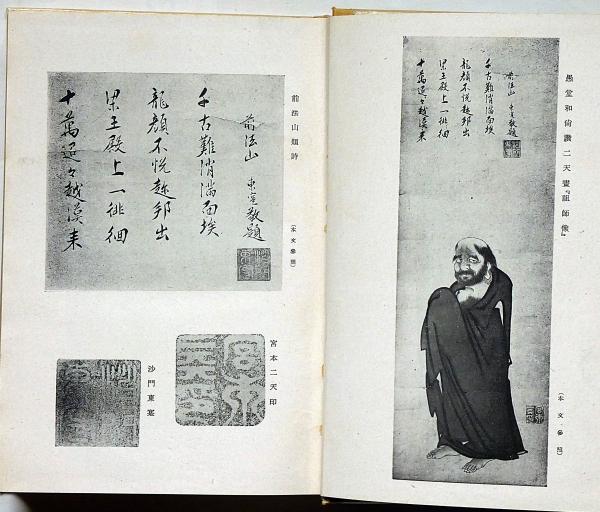 愚堂和尚讚二天畫『祖師像』
(本文參照)
十萬迢々越漠来
梁王殿上一徘徊
龍顔不悦趂邦出
千古難消満面埃
前法山 東寔敬題
前法山題詩
(本文參照)
十萬迢々越漠来
梁王殿上一徘徊
龍顔不悦趂邦出
千古難消満面埃
前法山 東寔敬題
宮本二天印
沙門東寔